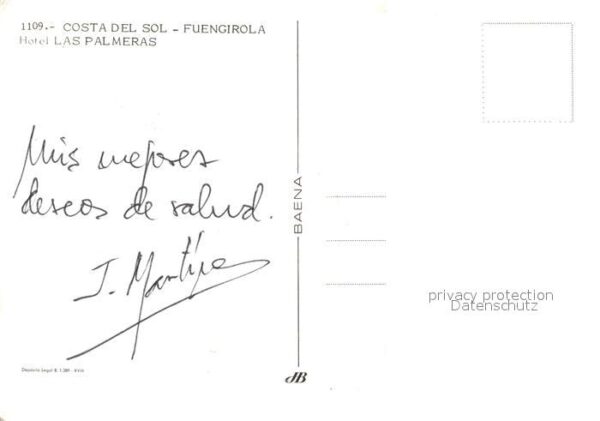 1109.- COSTA DEL SOL - FUENGIROLA
Hotel LAS PALMERAS
Mis mejores
deseos de salud.
J. Martínez
BAENA
privacy protection
Datenschutz
Depósito Legal B. 1.381 - XVIII
JB